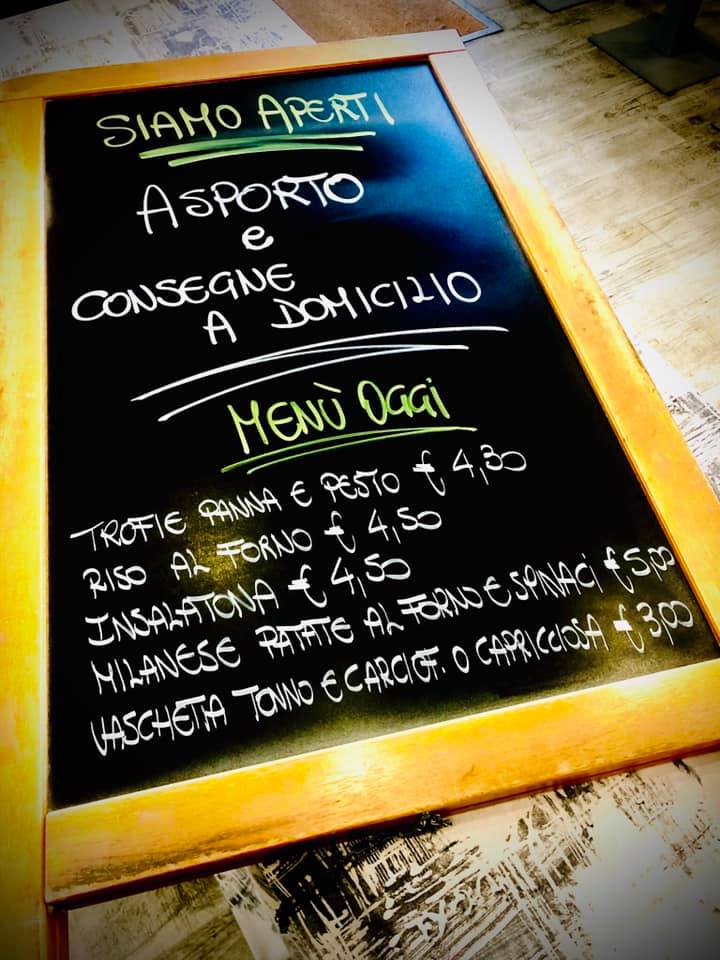 SIAMO APERTI
ASPORTO
e
CONSEGNE
A DOMICILIO
MENÙ OGGI
TROFIE PANNA E PESTO € 4,30
RISO AL FORNO € 4,50
INSALATONA € 4,50
MILANESE PATATE AL FORNO E SPINACI € 5,00
VASCHETTA TONNO E CARCIOF. O CAPRICCIOSA € 3,00